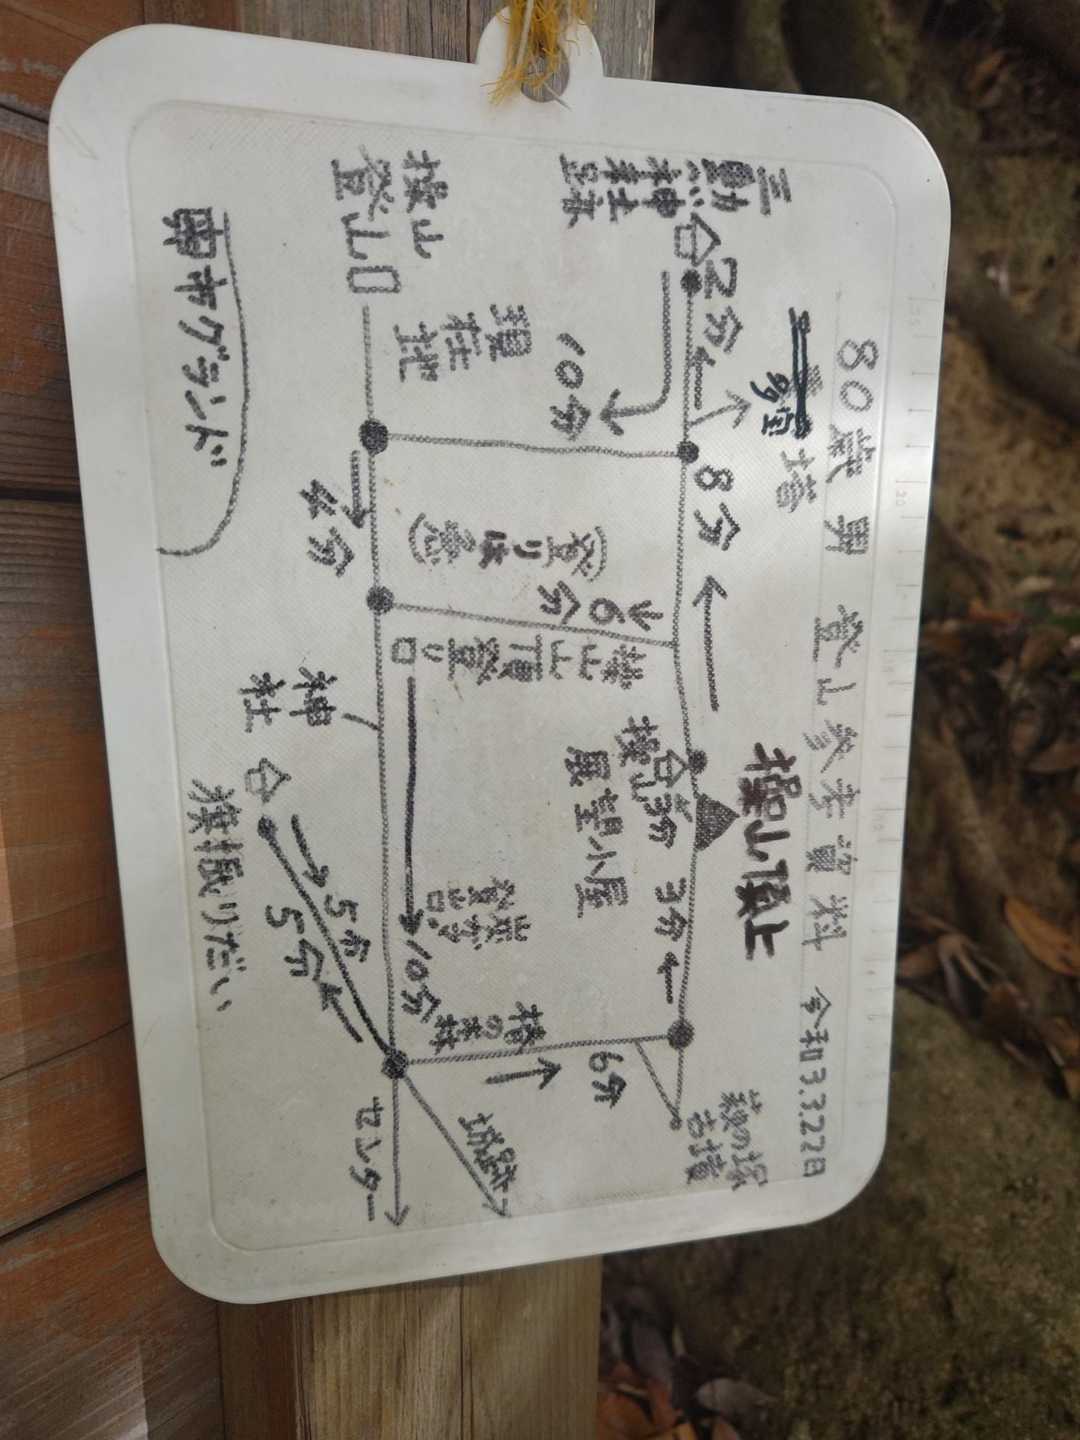 80歳 男 登山参考資料 令和3.3.22日
三勲
神社
跡
2分
多宝塔
8分
操山頂上
3分
操山
展望小屋
萩の塚
古墳
6分
10分
(登りは急)
6分
操山頂登り口
操山
登山口
現在地
4分
10分
神
社
5分
5分
旗振りだい
城跡
センター
南市グランド